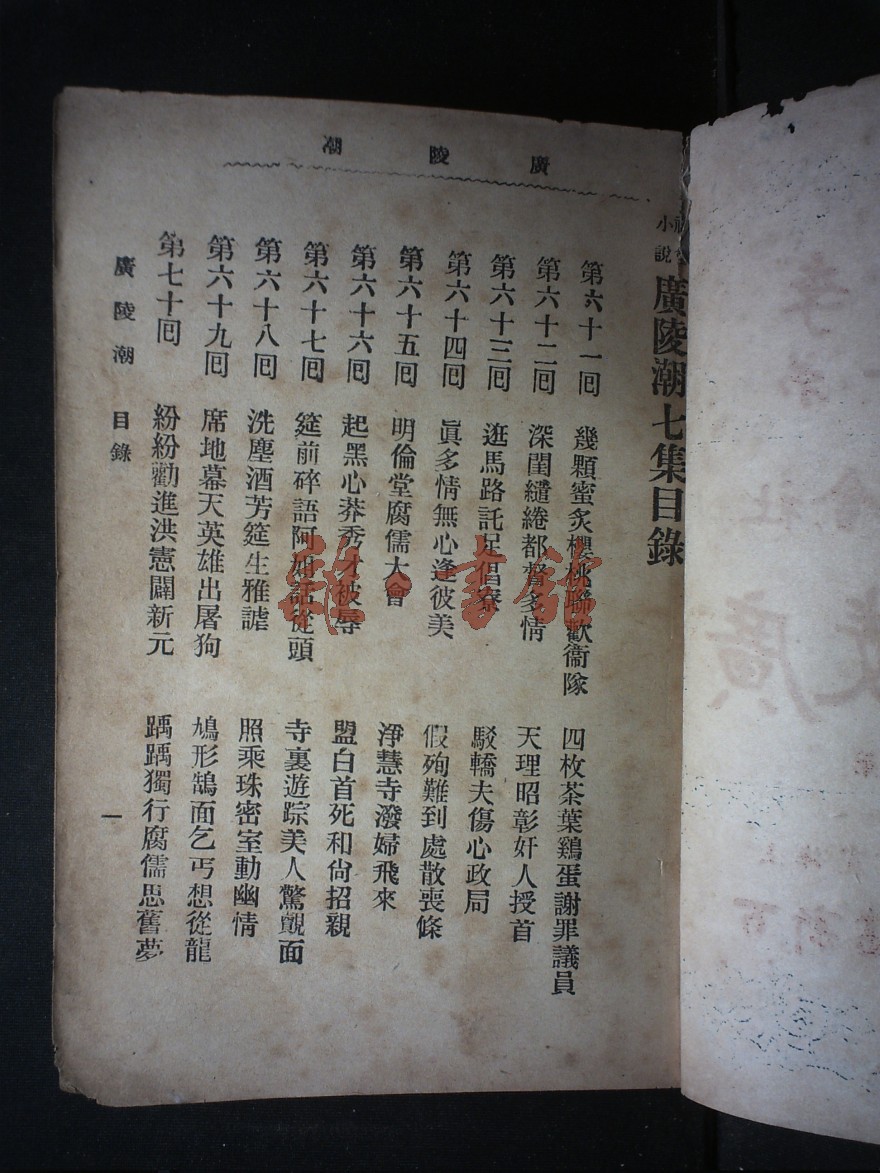 廣陵潮
小說
廣陵潮七集目錄
第六十一囘 幾顆蜜炙櫻桃聯歡衞隊 四枚茶葉鷄蛋謝罪議員
第六十二囘 深閨繾綣都督多情 天理昭彰奸人授首
第六十三囘 逛馬路託足倡寮 駁轎夫傷心政局
第六十四囘 眞多情無心逢彼美 假殉難到處散喪條
第六十五囘 明倫堂腐儒大會 淨慧寺潑婦飛來
第六十六囘 起黑心莽秀才被辱 盟白首死和尙招親
第六十七囘 筵前碎語阿姐話從頭 寺裏遊踪美人驚覿面
第六十八囘 洗塵酒芳筵生雅謔 照乘珠密室動幽情
第六十九囘 席地幕天英雄出屠狗 鳩形鵠面乞丐想從龍
第七十囘 紛紛勸進洪憲闢新元 踽踽獨行腐儒思舊夢
廣陵潮 目錄
一
雅書館
廣